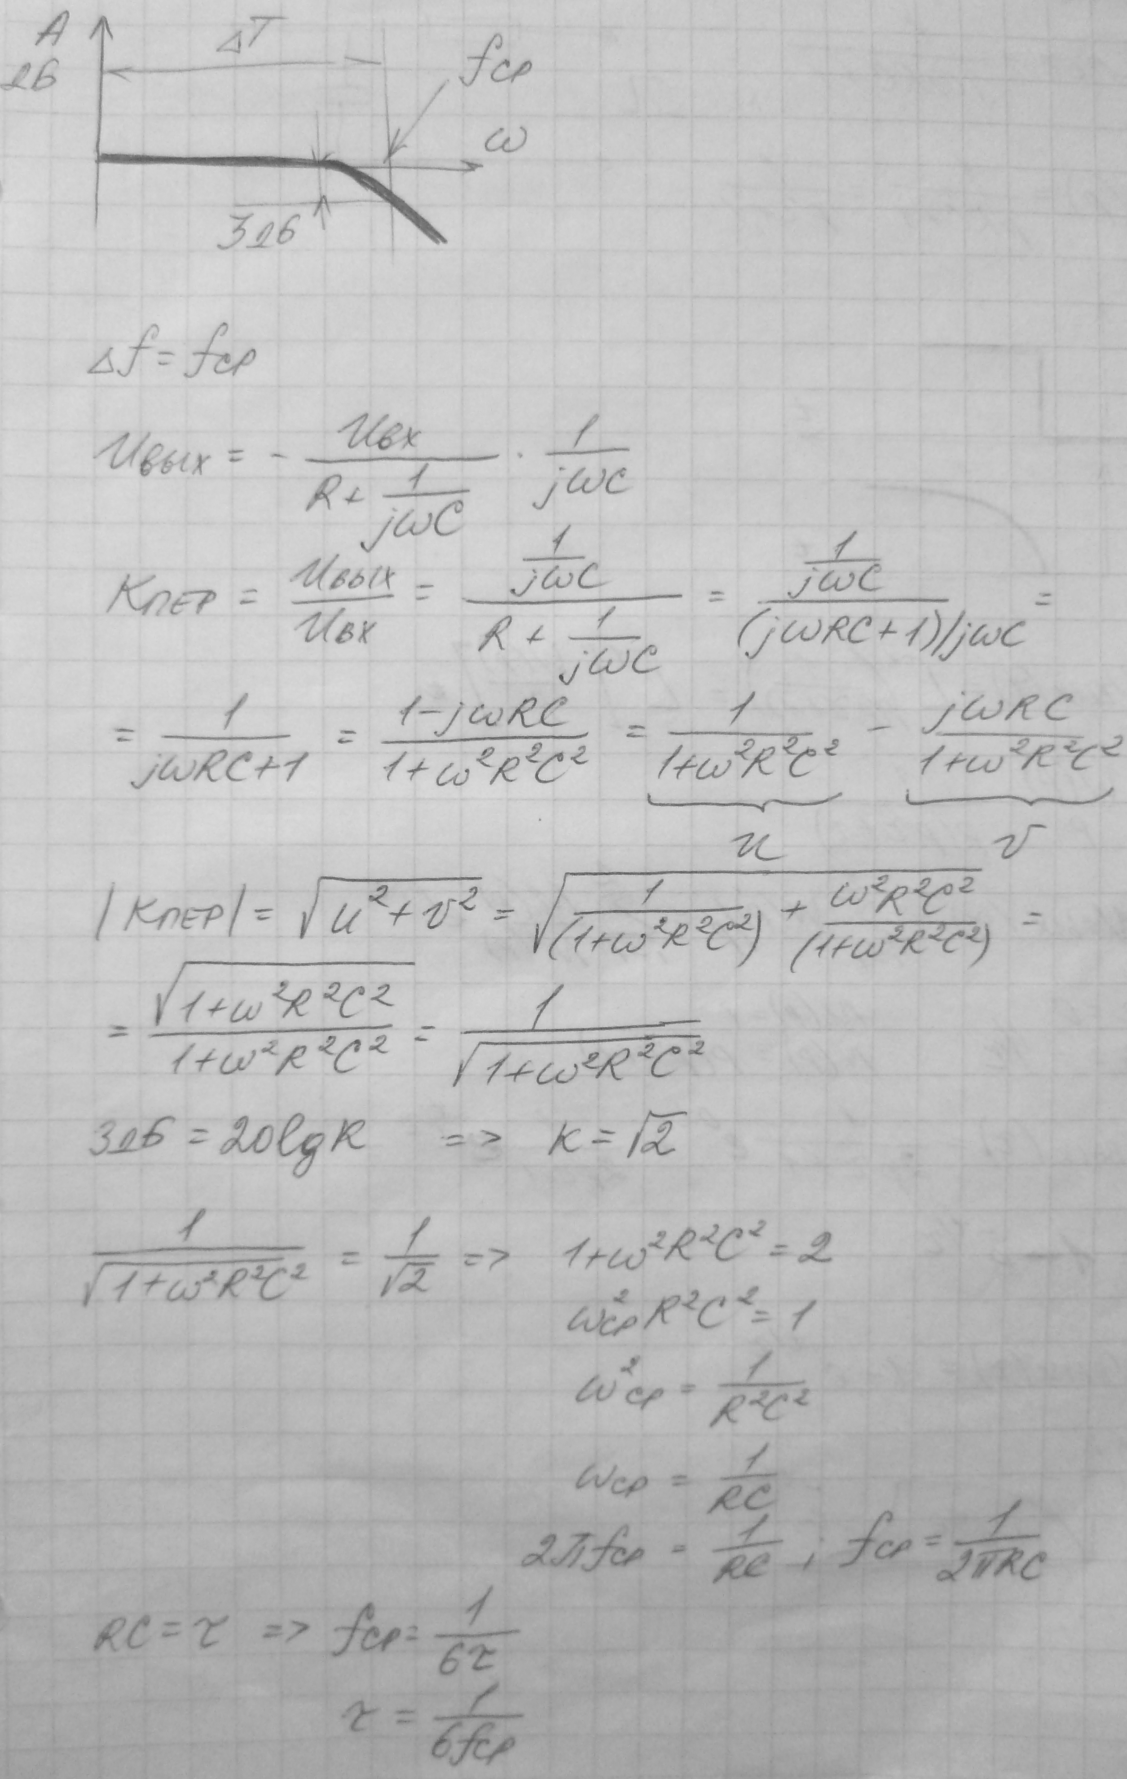 A
дБ
ΔT
fср
ω
3дБ
Δf = fср
Uвых = - Uвх / (R + 1/jωC) · 1/jωC
Kпер = Uвых/Uвх = (1/jωC) / (R + 1/jωC) = (1/jωC) / ((jωRC+1)/jωC) =
= 1/(jωRC+1) = (1-jωRC)/(1+ω²R²C²) = 1/(1+ω²R²C²) - jωRC/(1+ω²R²C²)
u v
|Kпер| = √(u²+v²) = √(1/(1+ω²R²C²) + ω²R²C²/(1+ω²R²C²)) =
= √(1+ω²R²C²)/(1+ω²R²C²) = 1/√(1+ω²R²C²)
3дБ = 20lgK => K = √2
1/√(1+ω²R²C²) = 1/√2 => 1+ω²R²C² = 2
ω²ср R²C² = 1
ω²ср = 1/R²C²
ωср = 1/RC
2πfср = 1/RC ; fср = 1/2πRC
RC = τ => fср = 1/6τ
τ = 1/6fср